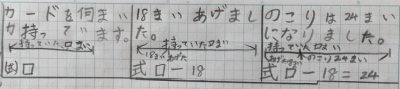 カードを何まい
か持っています。
持っていた□まい
式 □
18まいあげまし
た。
持っていた□まい
18まいあげた
式 □-18
のこりは24まい
になりました。
持っていた□まい
のこり24まい
式 □-18=24